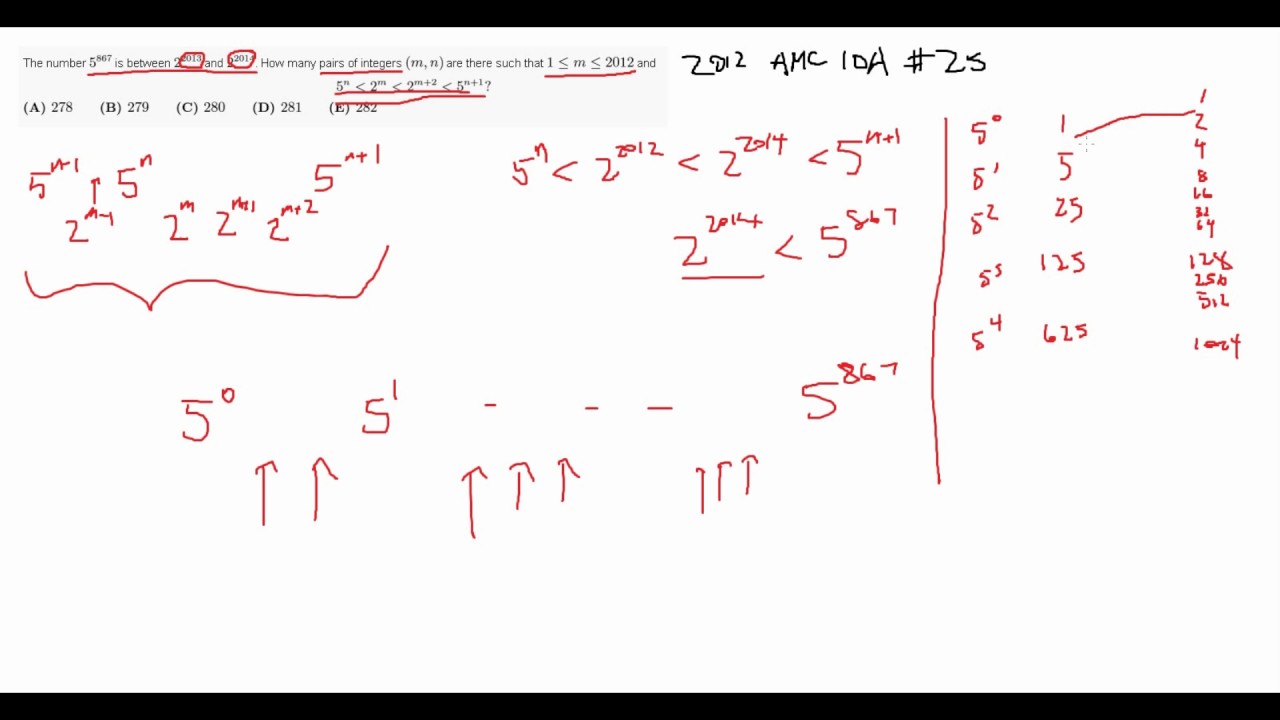 The number 5^867 is between 2^2013 and 2^2014. How many pairs of integers (m, n) are there such that 1 ≤ m ≤ 2012 and
5^n < 2^m < 2^(m+2) < 5^(n+1)?
(A) 278 (B) 279 (C) 280 (D) 281 (E) 282
2012 AMC 10A #25
5^(n-1) 5^n 5^(n+1)
2^(m-1) 2^m 2^(m+1) 2^(m+2)
5^n < 2^2012 < 2^2014 < 5^(n+1)
2^2014 < 5^867
5^0 5^1 - - - 5^867
5^0 1
5^1 5
5^2 25
5^3 125
5^4 625
1
2
4
8
16
32
64
128
256
512
1024